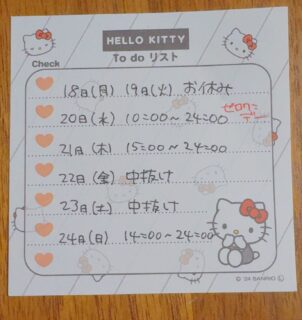 HELLO KITTY
Check
To do リスト
18日(月) 19日(火) お休み
20日(水) 10:00〜24:00
21日(木) 15:00〜24:00
22日(金) 中抜け
23日(土) 中抜け
24日(日) 14:00〜24:00
© '24 SANRIO